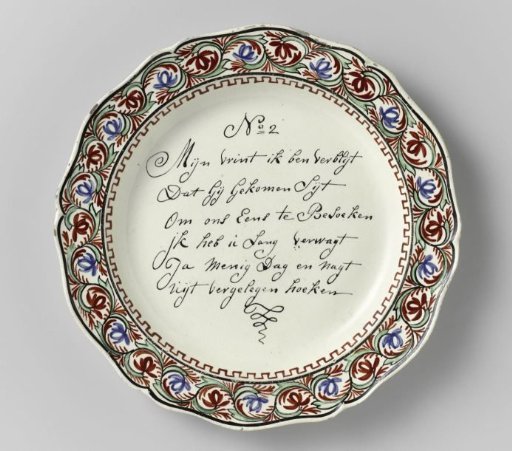 No 2
Mijn vrint ik ben verblyt
Dat Gij Gekomen Syt
Om ons Eens te Besoeken
jk heb u Lang verwagt
Ja Menig Dag en nagt
vyt vergelegen hoeken